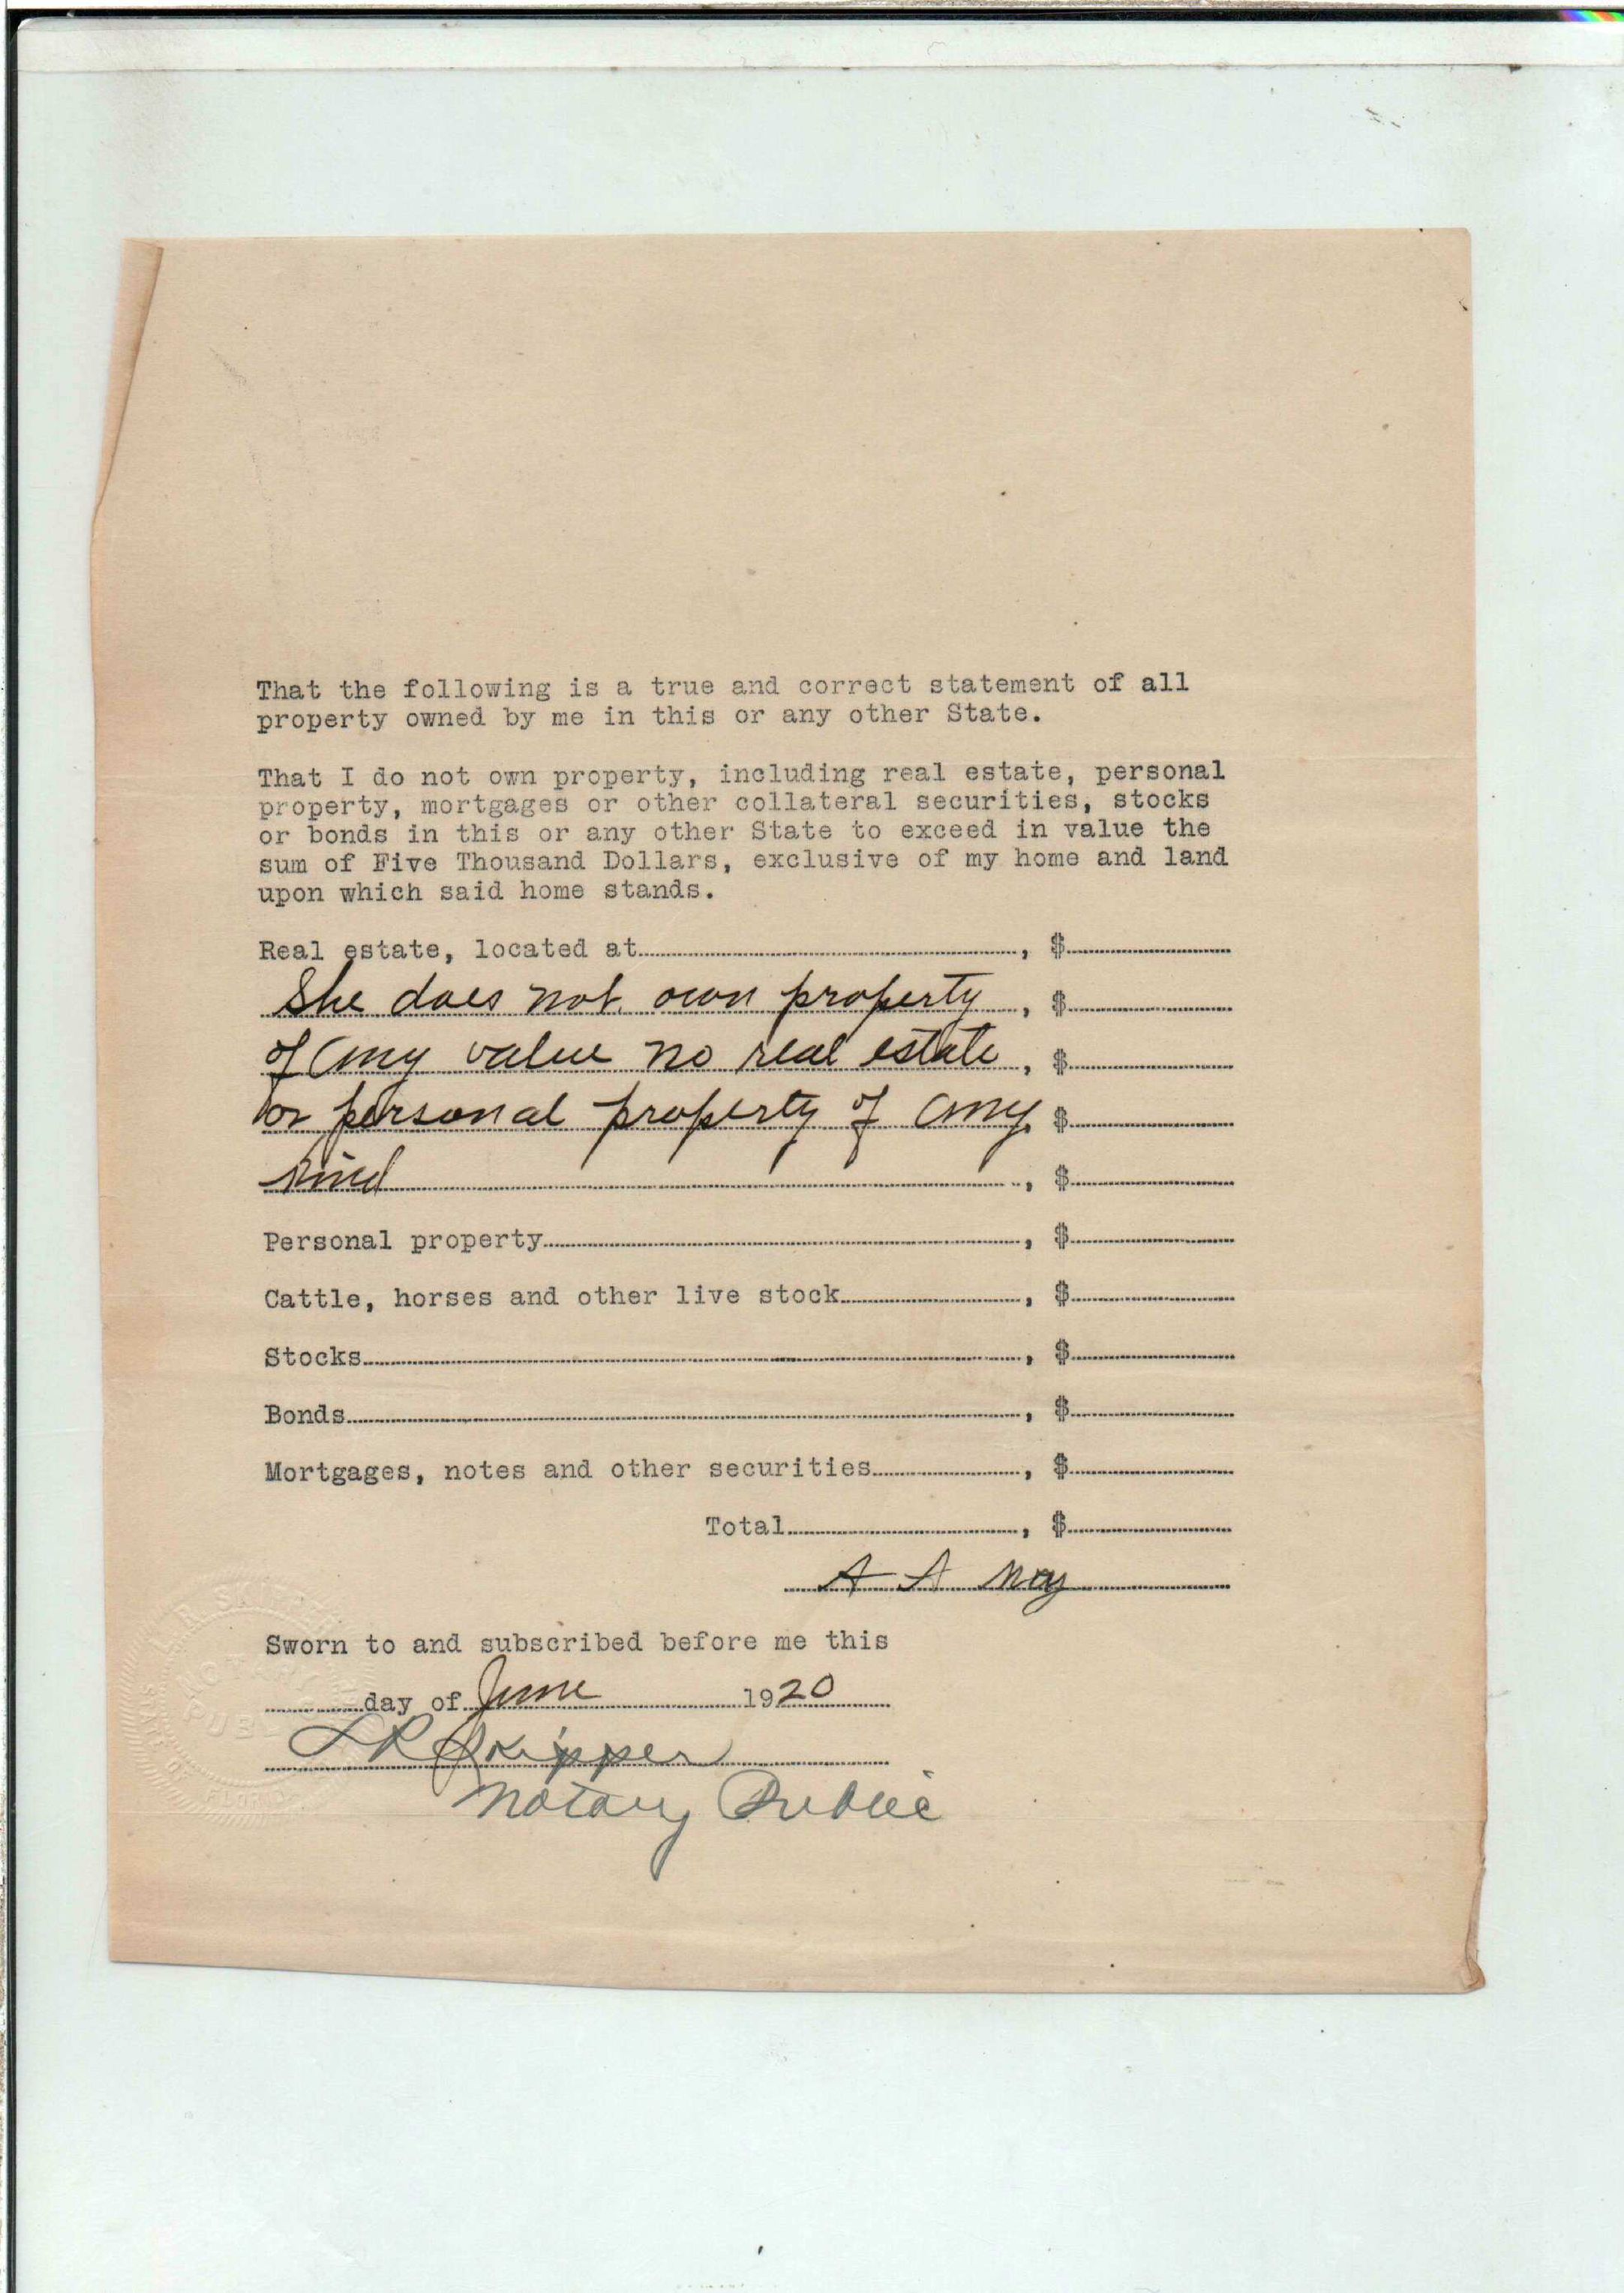 That the following is a true and correct statement of all
property owned by me in this or any other State.
That I do not own property, including real estate, personal
property, mortgages or other collateral securities, stocks
or bonds in this or any other State to exceed in value the
sum of Five Thousand Dollars, exclusive of my home and land
upon which said home stands.
Real estate, located at, $
She does not own property, $
of any value no real estate, $
or personal property of any, $
kind, $
Personal property, $
Cattle, horses and other live stock, $
Stocks, $
Bonds, $
Mortgages, notes and other securities, $
Total, $
A A May
Sworn to and subscribed before me this
day of June 1920
L R Skipper
Notary Public